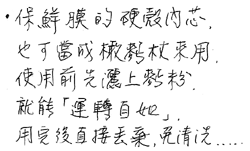 ·保鮮膜的硬殼內芯,
也可當成橄麪杖來用.
使用前先灑上麪粉,
就能「運轉自如」,
用完後直接丟棄,免清洗.....